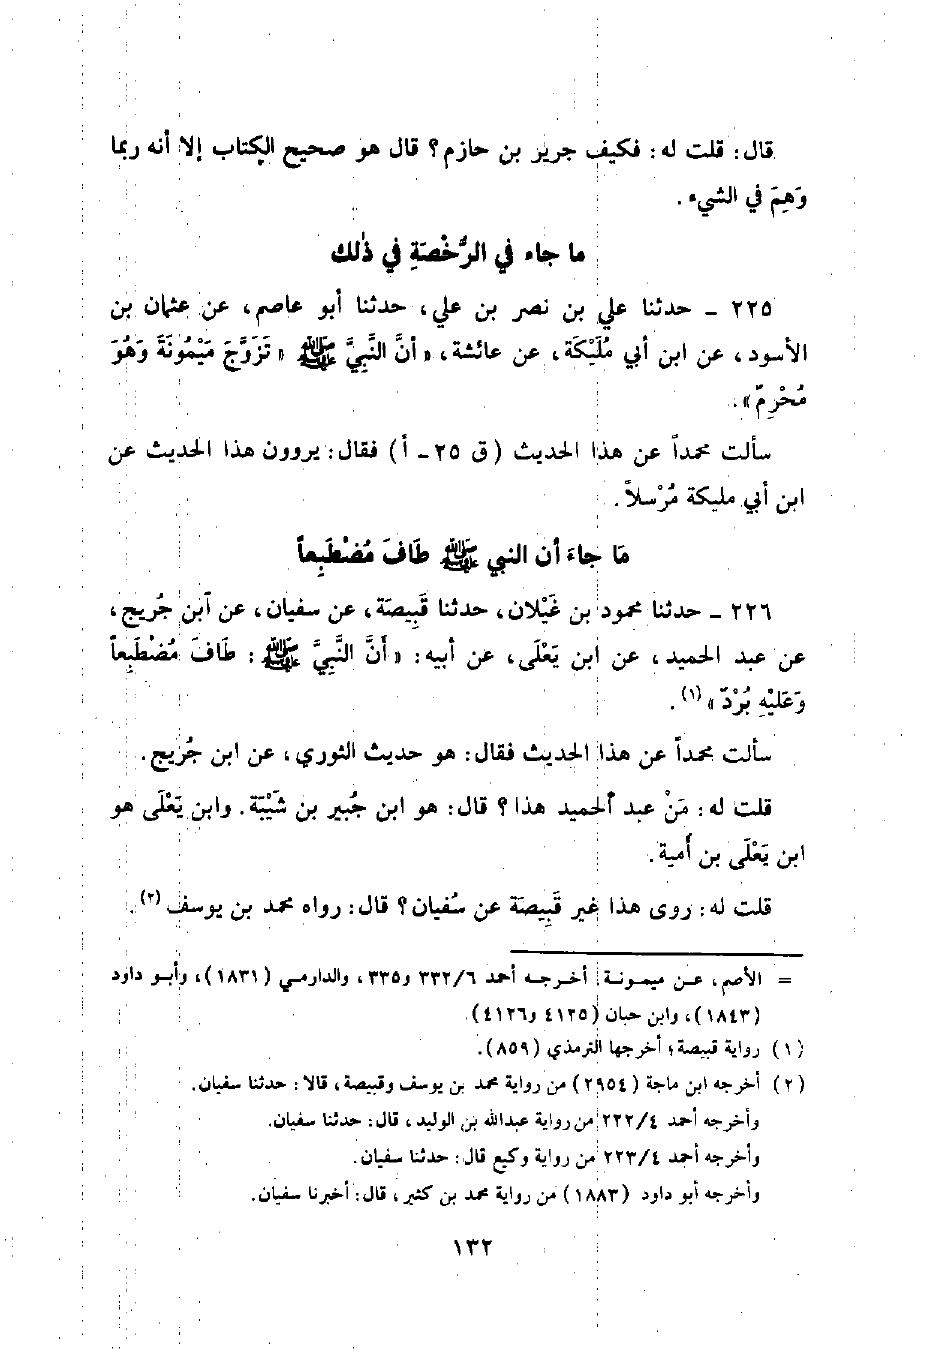 قال: قلت له: فكيف جرير بن حازم؟ قال هو صحيح الكتاب إلا أنه ربما
وَهِمَ في الشيء.
ما جاء في الرُّخْصَةِ في ذٰلك
٢٢٥ ـ حدثنا علي بن نصر بن علي، حدثنا أبو عاصم، عن عثمان بن
الأسود، عن ابن أبي مُلَيْكَة، عن عائشة، «أنَّ النَّبِيَّ ﷺ «تَزَوَّجَ مَيْمُونَةَ وَهُوَ
مُحْرِمٌ».
سألت محمداً عن هذا الحديث (ق ٢٥ ـ أ) فقال: يروون هذا الحديث عن
ابن أبي مليكة مُرْسلاً.
مَا جاءَ أن النبي ﷺ طَافَ مُضْطَبِعاً
٢٢٦ ـ حدثنا محمود بن غَيْلان، حدثنا قَبِيصَة، عن سفيان، عن ابن جُريج،
عن عبد الحميد، عن ابن يَعْلَى، عن أبيه: «أَنَّ النَّبِيَّ ﷺ: طَافَ مُضْطَبِعاً
وَعَلَيْهِ بُرْدٌ»(١).
سألت محمداً عن هذا الحديث فقال: هو حديث الثوري، عن ابن جُريج.
قلت له: مَنْ عبد الحميد هذا؟ قال: هو ابن جُبير بن شَيْبَة. وابن يَعْلَى هو
ابن يَعْلَى بن أمية.
قلت له: روى هذا غير قَبِيصَة عن سُفيان؟ قال: رواه محمد بن يوسف(٢).
= الأصم، عن ميمونة: أخرجه أحمد ٣٣٢/٦ و٣٣٥، والدارمي (١٨٣١)، وأبو داود
(١٨٤٣)، وابن حبان (٤١٢٥ و٤١٢٦).
(١) رواية قبيصة؛ أخرجها الترمذي (٨٥٩).
(٢) أخرجه ابن ماجة (٢٩٥٤) من رواية محمد بن يوسف وقبيصة، قالا: حدثنا سفيان.
وأخرجه أحمد ٢٢٢/٤ من رواية عبدالله بن الوليد، قال: حدثنا سفيان.
وأخرجه أحمد ٢٢٣/٤ من رواية وكيع قال: حدثنا سفيان.
وأخرجه أبو داود (١٨٨٣) من رواية محمد بن كثير، قال: أخبرنا سفيان.
١٣٢